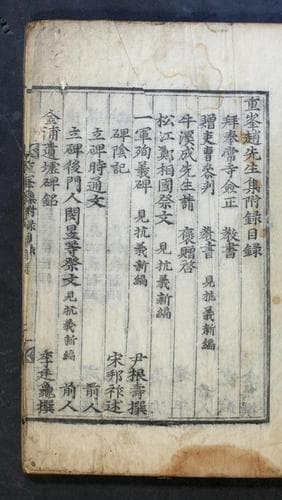 重峯趙先生集附録目録
拜奉常寺僉正 教書
贈吏曹參判 教書 見抗義新編
牛溪成先生請 褒贈啓
松江鄭相國祭文 見抗義新編
一軍殉義碑 見抗義新編 尹根壽撰
碑陰記 宋邦祚述
立碑時通文 前人
立碑後門人閔昱等祭文 見抗義新編 前人
金浦遺墟碑銘 李廷龜撰